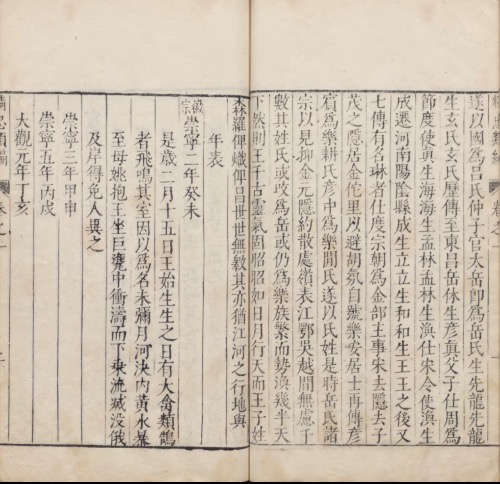 遂以國爲吕氏仲子官太岳卽爲岳氏生先龍先龍
生玄氏玄氏歷傳至東吕岳休生彦真父子仕周爲
節度使真生海海生孟林孟林生渙仕宋令使渙生
成遷河南陽陰縣成生立立生和和生王王之後又
七傳有名琳者仕度宗朝爲金部主事宋去隱去子
茂之隱居金佗里以避胡氛自號樂安居士再傳彦
賓爲樂耕氏彦中爲樂閒氏遂以氏姓是時岳氏諸
宗以見抑金元隱約散處嶺表江鄂吳越間無慮千
數其姓氏或改爲岳或仍爲樂族繁而勢渙幾半天
下然則王千古靈氣固昭昭如日月行天而王子姓
森羅俾熾俾昌世世無斁其亦猶江河之行地與
年表
徽宗崇寧二年癸未
是歲二月十五日王始生生之日有大禽類鵠
者飛鳴其室因以爲名未彌月河决内黄水暴
至母姚抱王坐巨甕中衝濤而下乘流滅没俄
及岸得免人異之
崇寧三年甲申
崇寧五年丙戌
大觀元年丁亥
卷之一